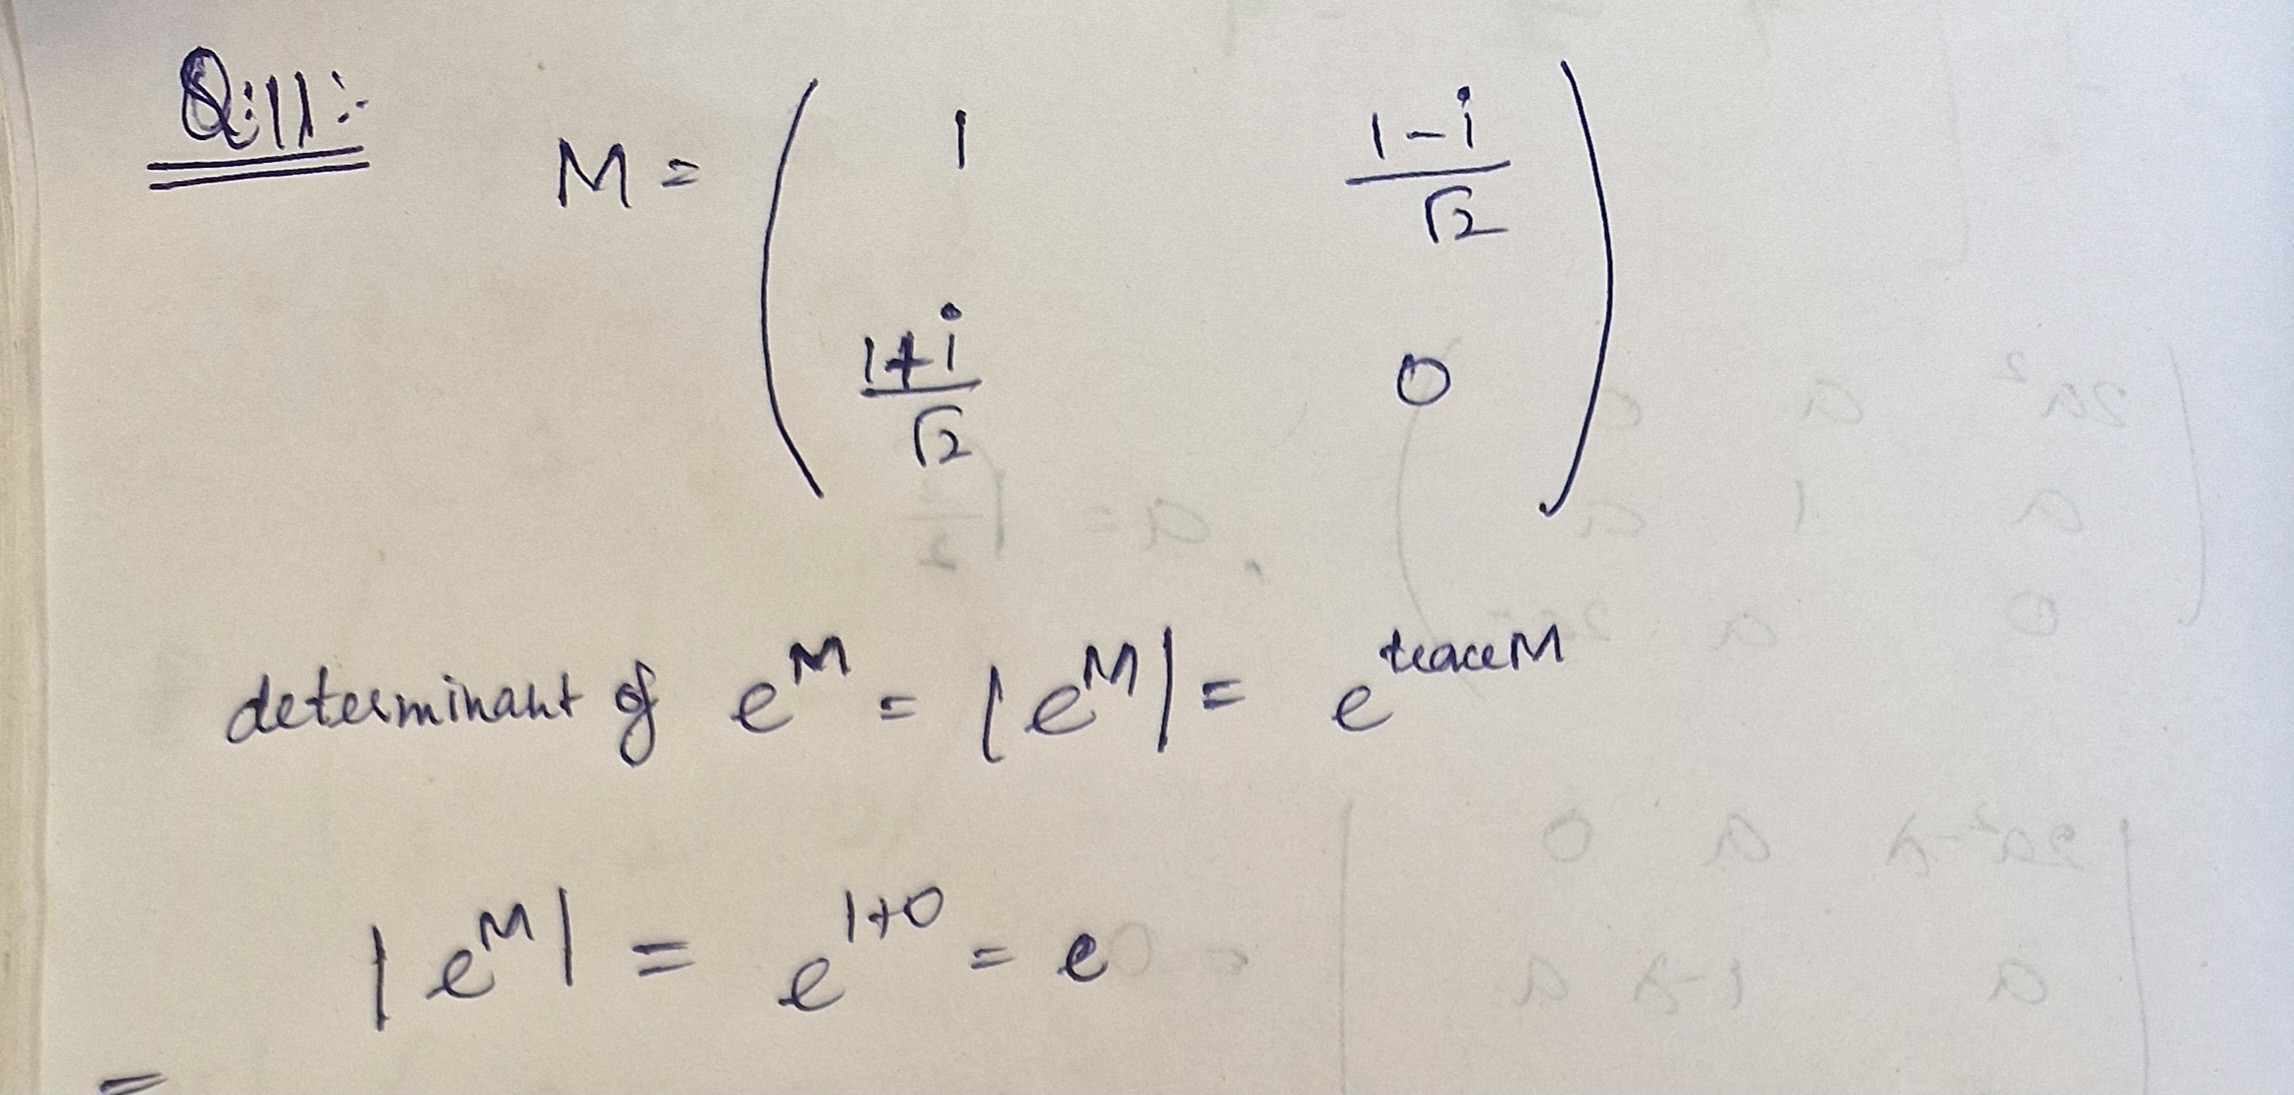 Q:11:-
M = ( 1 1-i/√2
1+i/√2 0 )
determinant of e^M = |e^M| = e^trace M
|e^M| = e^1+0 = e
=